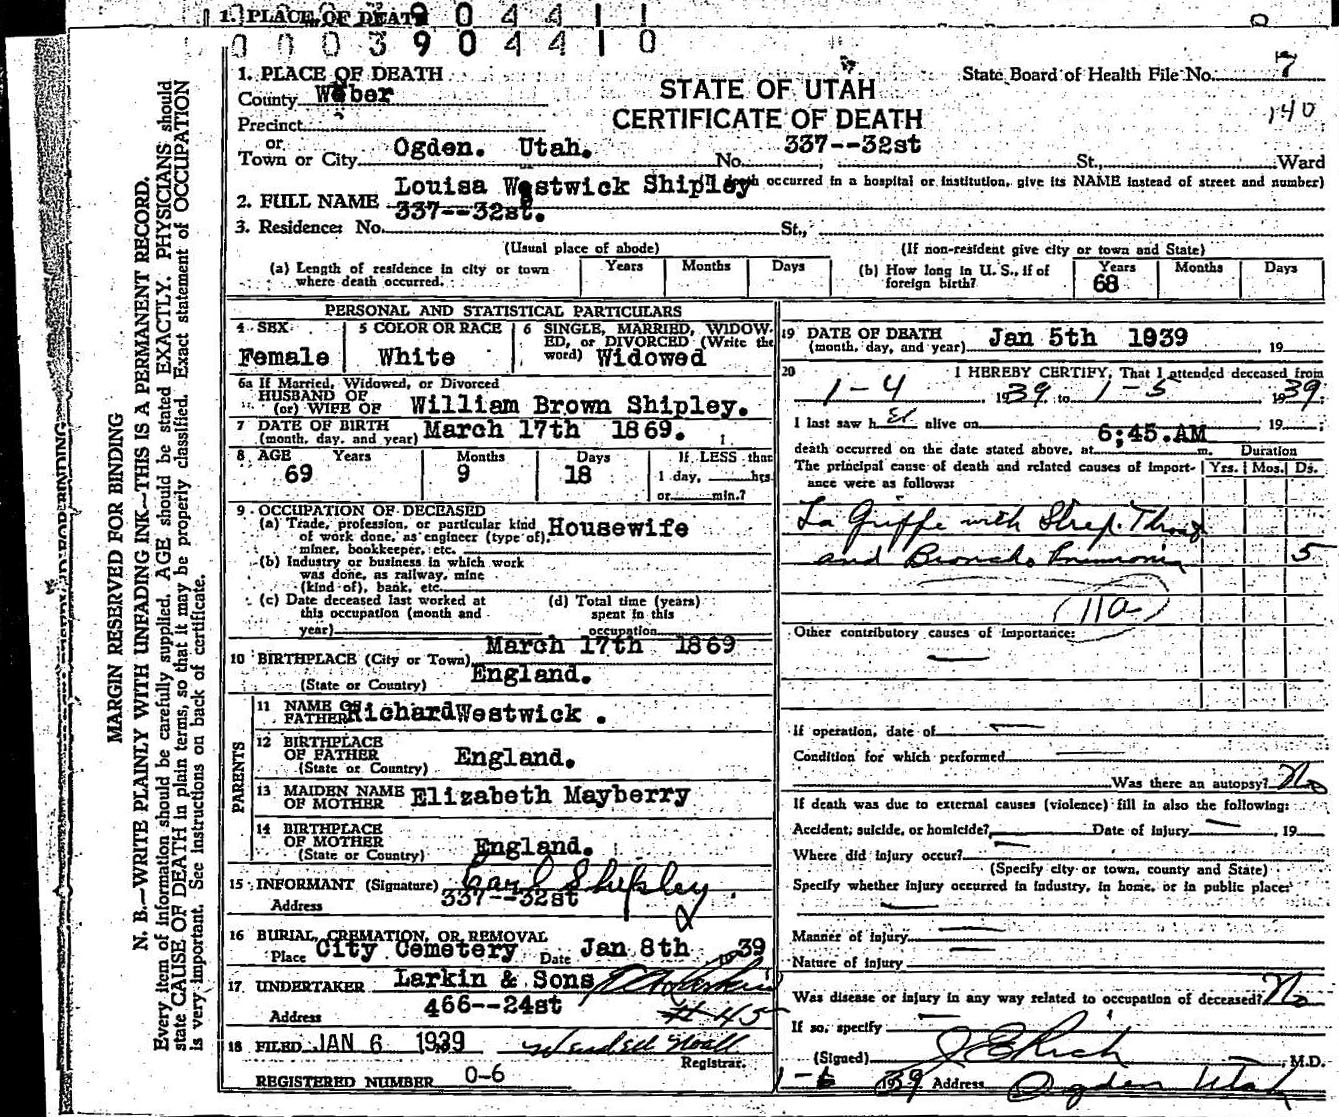 1. PLACE OF DEATH 9 0 4 4 1 1
0 0 0 3 9 0 4 4 1 0
1. PLACE OF DEATH
County Weber
Precinct
or
Town or City Ogden. Utah.
STATE OF UTAH
CERTIFICATE OF DEATH
State Board of Health File No. 7
140
No. 337--32st St., Ward
death occurred in a hospital or institution, give its NAME instead of street and number)
2. FULL NAME Louisa Westwick Shipley
3. Residence: No. 337--32st. St.,
(Usual place of abode) (If non-resident give city or town and State)
(a) Length of residence in city or town where death occurred. Years Months Days
(b) How long in U. S., if of foreign birth? Years 68 Months Days
PERSONAL AND STATISTICAL PARTICULARS
4 SEX Female
5 COLOR OR RACE White
6 SINGLE, MARRIED, WIDOWED, or DIVORCED (Write the word) Widowed
6a If Married, Widowed, or Divorced
HUSBAND OF
(or) WIFE OF William Brown Shipley.
7 DATE OF BIRTH
(month, day, and year) March 17th 1869.
8 AGE Years Months Days If LESS than
69 9 18 1 day, hrs.
or min.?
9 OCCUPATION OF DECEASED
(a) Trade, profession, or particular kind of work done, as engineer (type of), miner, bookkeeper, etc. Housewife
(b) Industry or business in which work was done, as railway, mine (kind of), bank, etc.
(c) Date deceased last worked at this occupation (month and year)
(d) Total time (years) spent in this occupation
March 17th 1869
10 BIRTHPLACE (City or Town)
(State or Country) England.
PARENTS
11 NAME OF FATHER Richard Westwick .
12 BIRTHPLACE OF FATHER
(State or Country) England.
13 MAIDEN NAME OF MOTHER Elizabeth Mayberry
14 BIRTHPLACE OF MOTHER
(State or Country) England.
15 INFORMANT (Signature) Earl Shipley.
Address 337--32st
16 BURIAL, CREMATION, OR REMOVAL
Place City Cemetery Date Jan 8th 1939
17 UNDERTAKER Larkin & Sons
Address 466--24st # 45
18 FILED JAN 6 1939 Wendell Noall
Registrar.
REGISTERED NUMBER 0-6
19 DATE OF DEATH
(month, day, and year) Jan 5th 1939 , 19
20 I HEREBY CERTIFY, That I attended deceased from
1-4 1939 to 1-5 1939;
I last saw her alive on , 19 ;
death occurred on the date stated above, at 6;45.AM m. Duration
The principal cause of death and related causes of importance were as follows: Yrs. Mos. Ds.
La Grippe with Strep. Throat
and Broncho Pneumonia 5
11a
Other contributory causes of importance:
If operation, date of
Condition for which performed
Was there an autopsy? No
If death was due to external causes (violence) fill in also the following:
Accident, suicide, or homicide? Date of Injury , 19
Where did injury occur?
(Specify city or town, county and State)
Specify whether injury occurred in industry, in home, or in public places
Manner of injury
Nature of injury
Was disease or injury in any way related to occupation of deceased? No
If so, specify
(Signed) J E Rich M.D.
1-6 1939 Address Ogden Utah
MARGIN RESERVED FOR BINDING
N. B.—WRITE PLAINLY WITH UNFADING INK—THIS IS A PERMANENT RECORD.
Every item of information should be carefully supplied. AGE should be stated EXACTLY. PHYSICIANS should
state CAUSE OF DEATH in plain terms, so that it may be properly classified. Exact statement of OCCUPATION
is very important. See instructions on back of certificate.